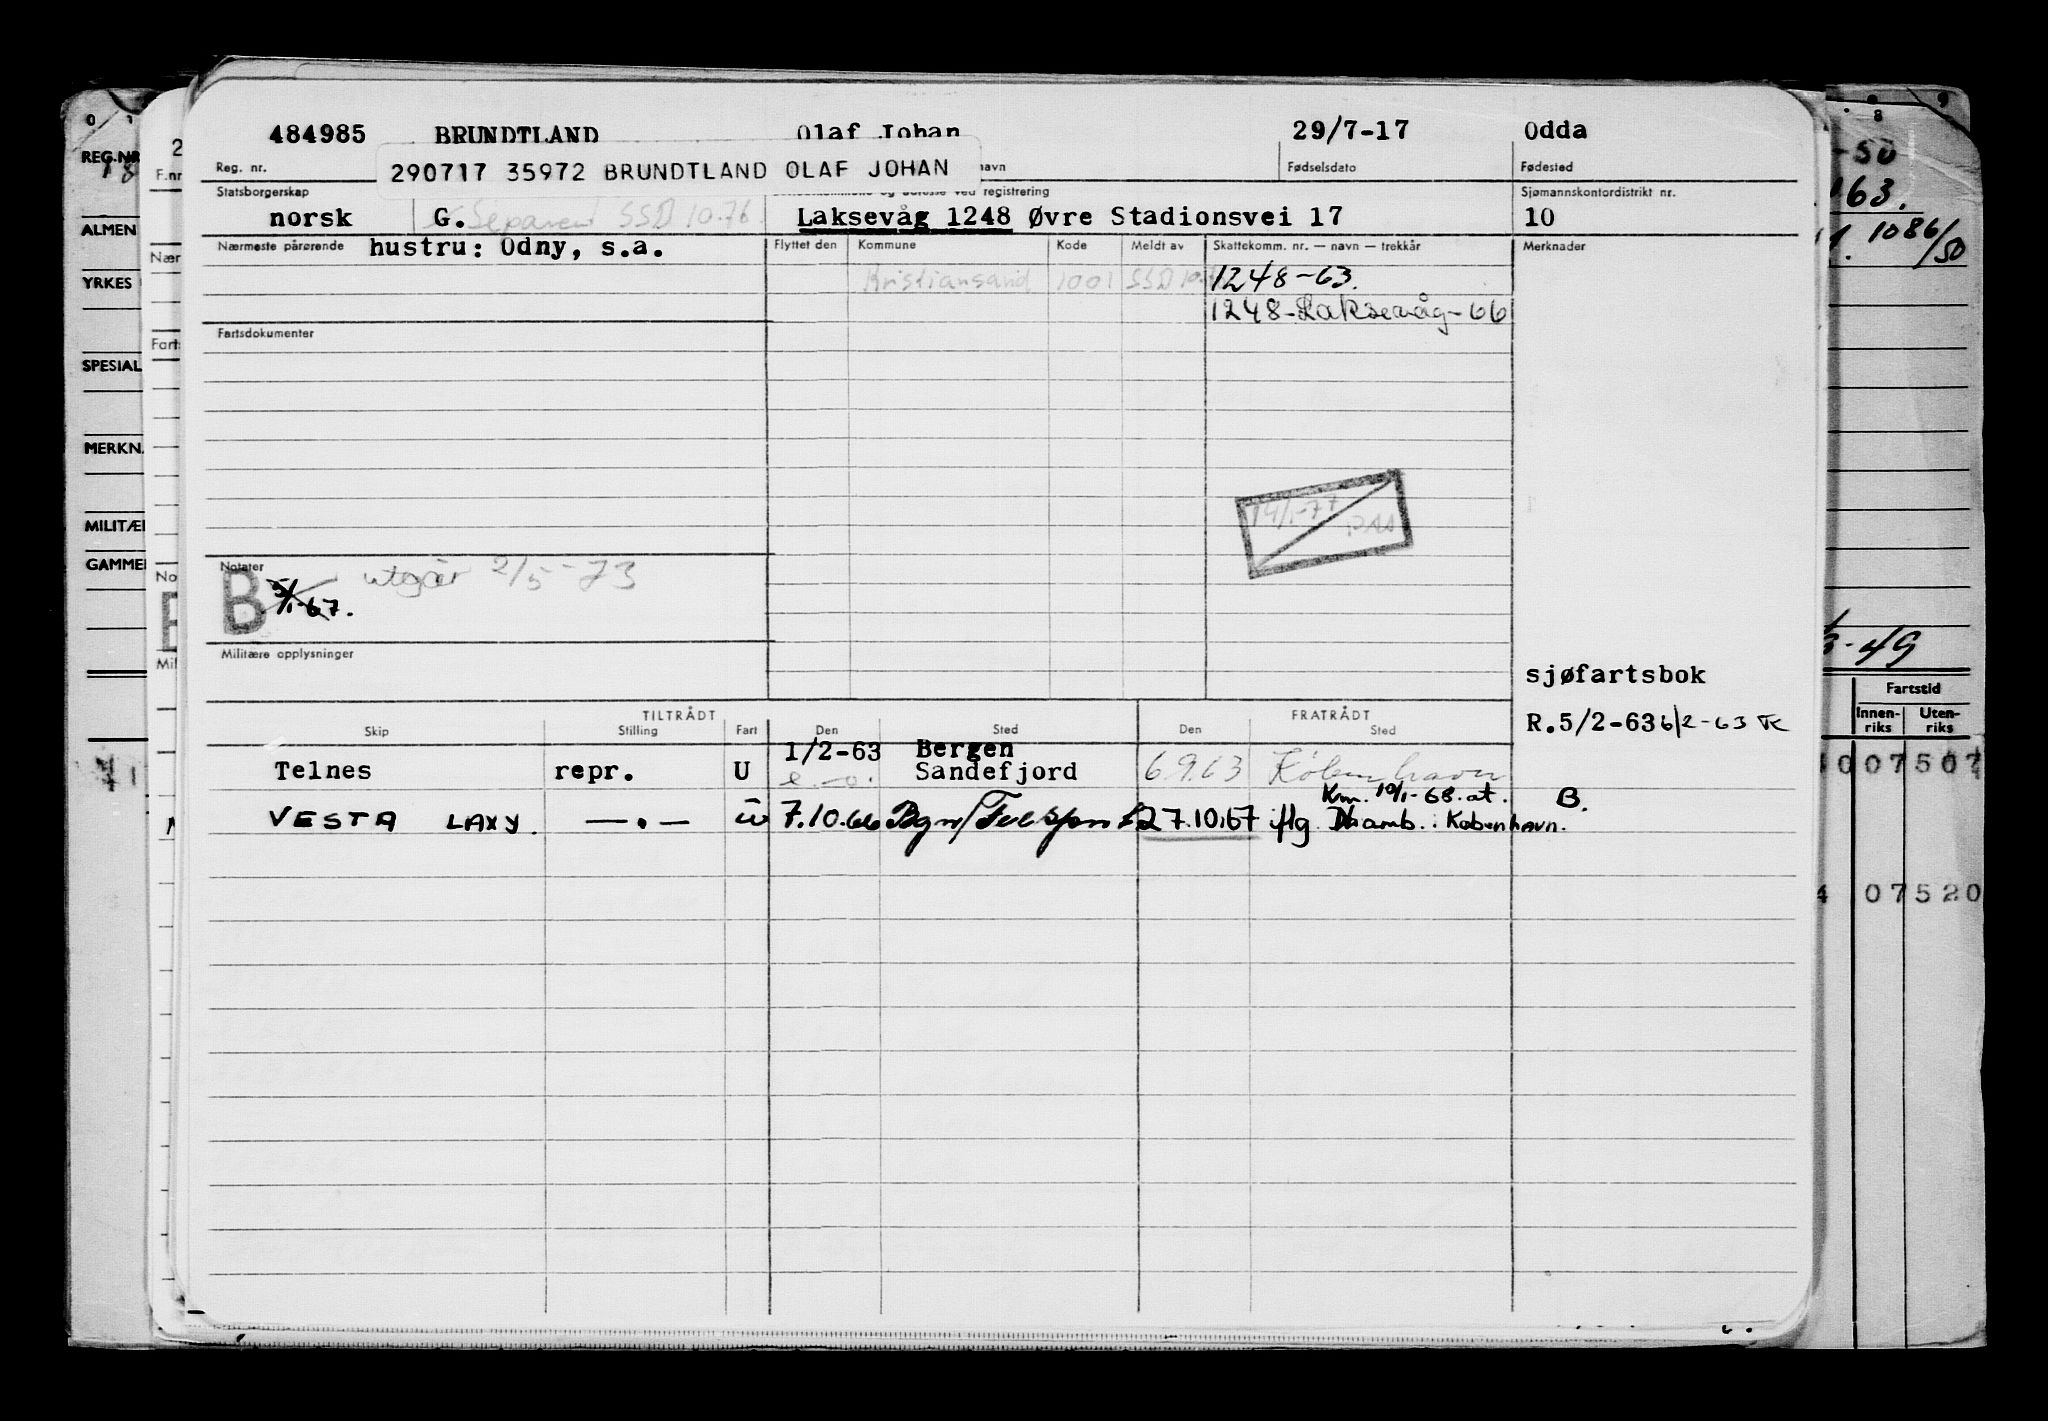 484985 BRUNDTLAND Olaf Johan 29/7-17 Odda
Reg. nr. 290717 35972 BRUNDTLAND OLAF JOHAN navn Fødselsdato Fødested
Statsborgerskap registrering Sjømannskontordistrikt nr.
norsk G. Separert SSD 10.76 Laksevåg 1248 Øvre Stadionsvei 17 10
Nærmeste pårørende hustru: Odny, s.a. Flyttet den Kommune Kode Meldt av Skattekomm. nr. — navn — trekkår Merknader
Kristiansand 1001 SSD 10.7 1248-63.
1248-Laksevåg-66
Fartsdokumenter
14/1-77
Notater
B 5/1-67. utgår 2/5-73
Militære opplysninger
sjøfartsbok
R.5/2-63 6/2-63
TILTRÅDT FRATRÅDT
Skip Stilling Fart Den Sted Den Sted
1/2-63 Bergen
Telnes repr. U Sandefjord 6.9.63 København
Km. 10/1-68. at. B.
VESTA LAXY. —.— U 7.10.66 27.10.67 iflg. Hamb. i København.
REG.NR
ALMEN
YRKES
SPESIAL
MERKN.
MILITÆ
GAMME
F.nr
Nær
Fart
No
Mil
-50
163.
1086/50
-49
Fartstid
Innen-riks Uten-riks
007507
07520